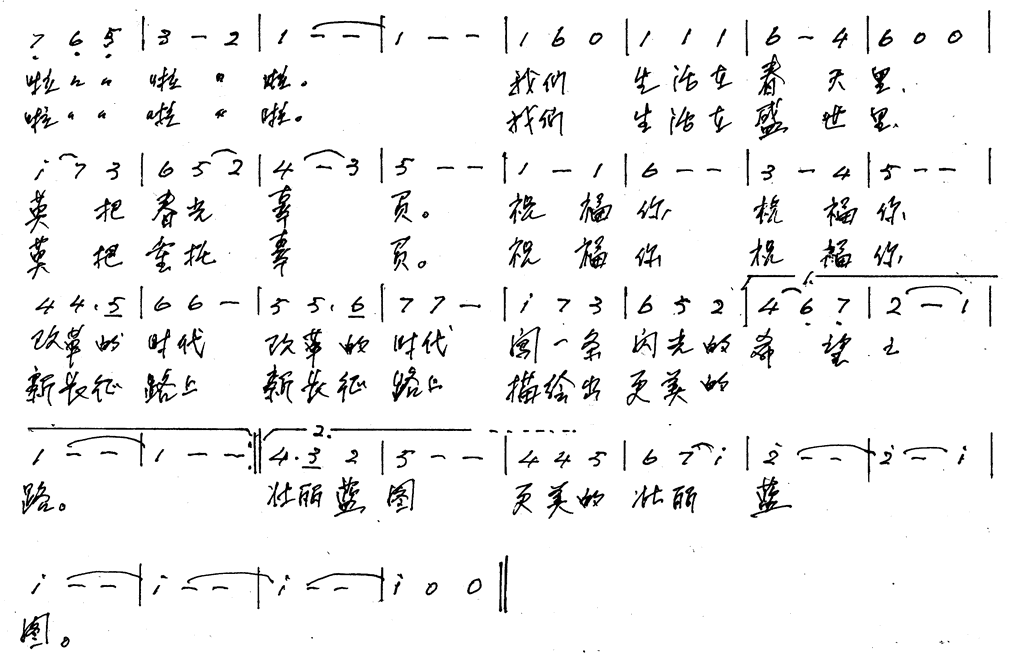 7 6 5 | 3 - 2 | 1 - - | 1 - - | 1 6 0 | 1 1 1 | 6 - 4 | 6 0 0 |
啦 〃 〃 啦 〃 啦。 我们 生活在春天里、
啦 〃 〃 啦 〃 啦。 我们 生活在盛世里、
i 7 3 | 6 5 2 | 4 - 3 | 5 - - | 1 - 1 | 6 - - | 3 - 4 | 5 - - |
莫把春光辜负。 祝福你 祝福你
莫把重托辜负。 祝福你 祝福你
4 4. 5 | 6 6 - | 5 5. 6 | 7 7 - | i 7 3 | 6 5 2 | 1. 4 6 7 | 2 - 1 |
改革的时代 改革的时代 闯一条闪光的希望之
新长征路上 新长征路上 描绘出更美的
1 - - | 1 - - :|| 2. 4. 3 2 | 5 - - | 4 4 5 | 6 7 i | 2 - - | 2 - i |
路。 壮丽蓝图 更美的壮丽蓝
i - - | i - - | i - - | i 0 0 ||
图。